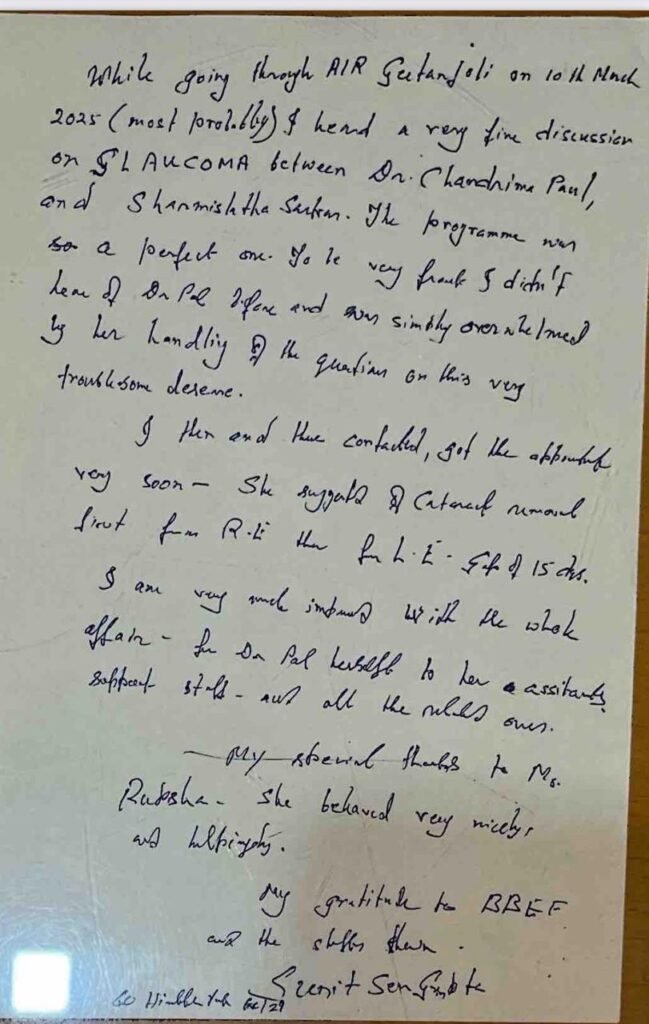 While going through AIR Geetanjali on 10th March
2025 (most probably) I heard a very fine discussion
on GLAUCOMA between Dr. Chandrima Paul,
and Sharmishtha Sarkar. The programme was
so a perfect one. To be very frank I didn't
hear of Dr Pal before and was simply overwhelmed
by her handling of the questions on this very
troublesome desease.
I then and there contacted, got the appointment
very soon - She suggested Cataract removal
first from R.E then for L.E - Gap of 15 ds.
I am very much impressed with the whole
affair - for Dr Pal herself to her assitants
support staff - and all the related ones.
My special thanks to Ms.
She behaved very nicely,
and helpingly.
My gratitude to BBEF
and the staffs there.
Sen Gupta